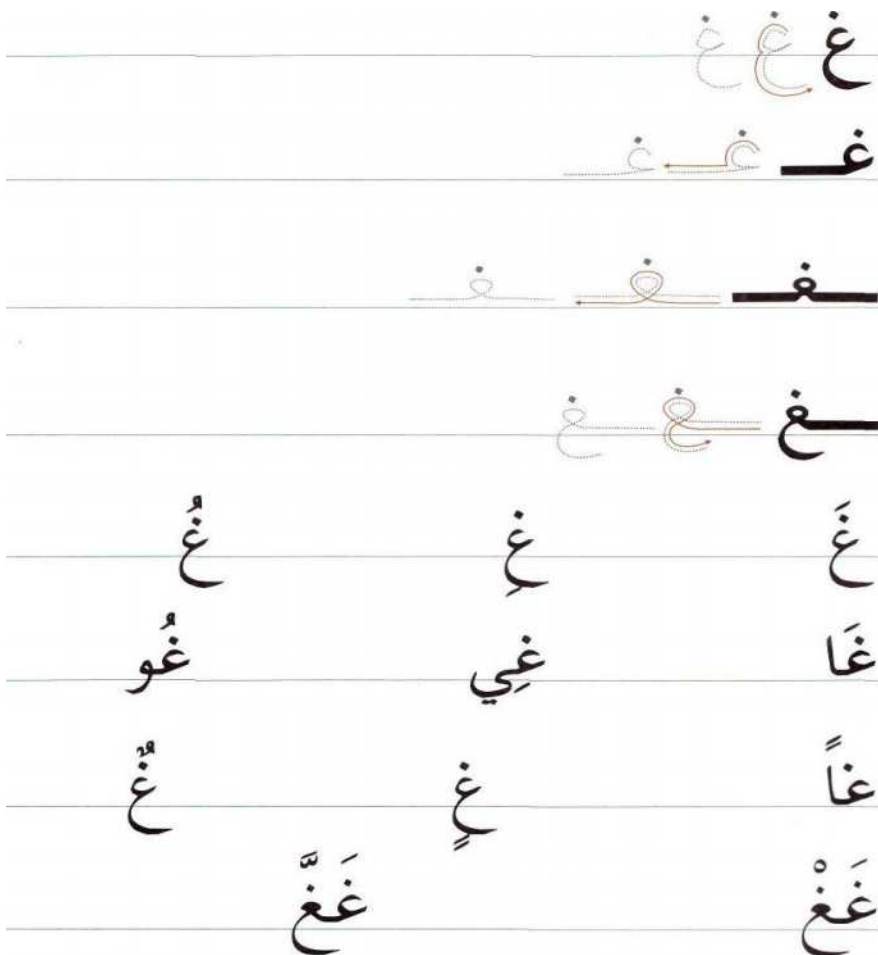 غ غ غ
غـ غـ غـ
ـغـ ـغـ ـغـ
ـغ ـغ ـغ
غَ غِ غُ
غَا غِي غُو
غاً غٍ غٌ
غَغْ غَغَّ